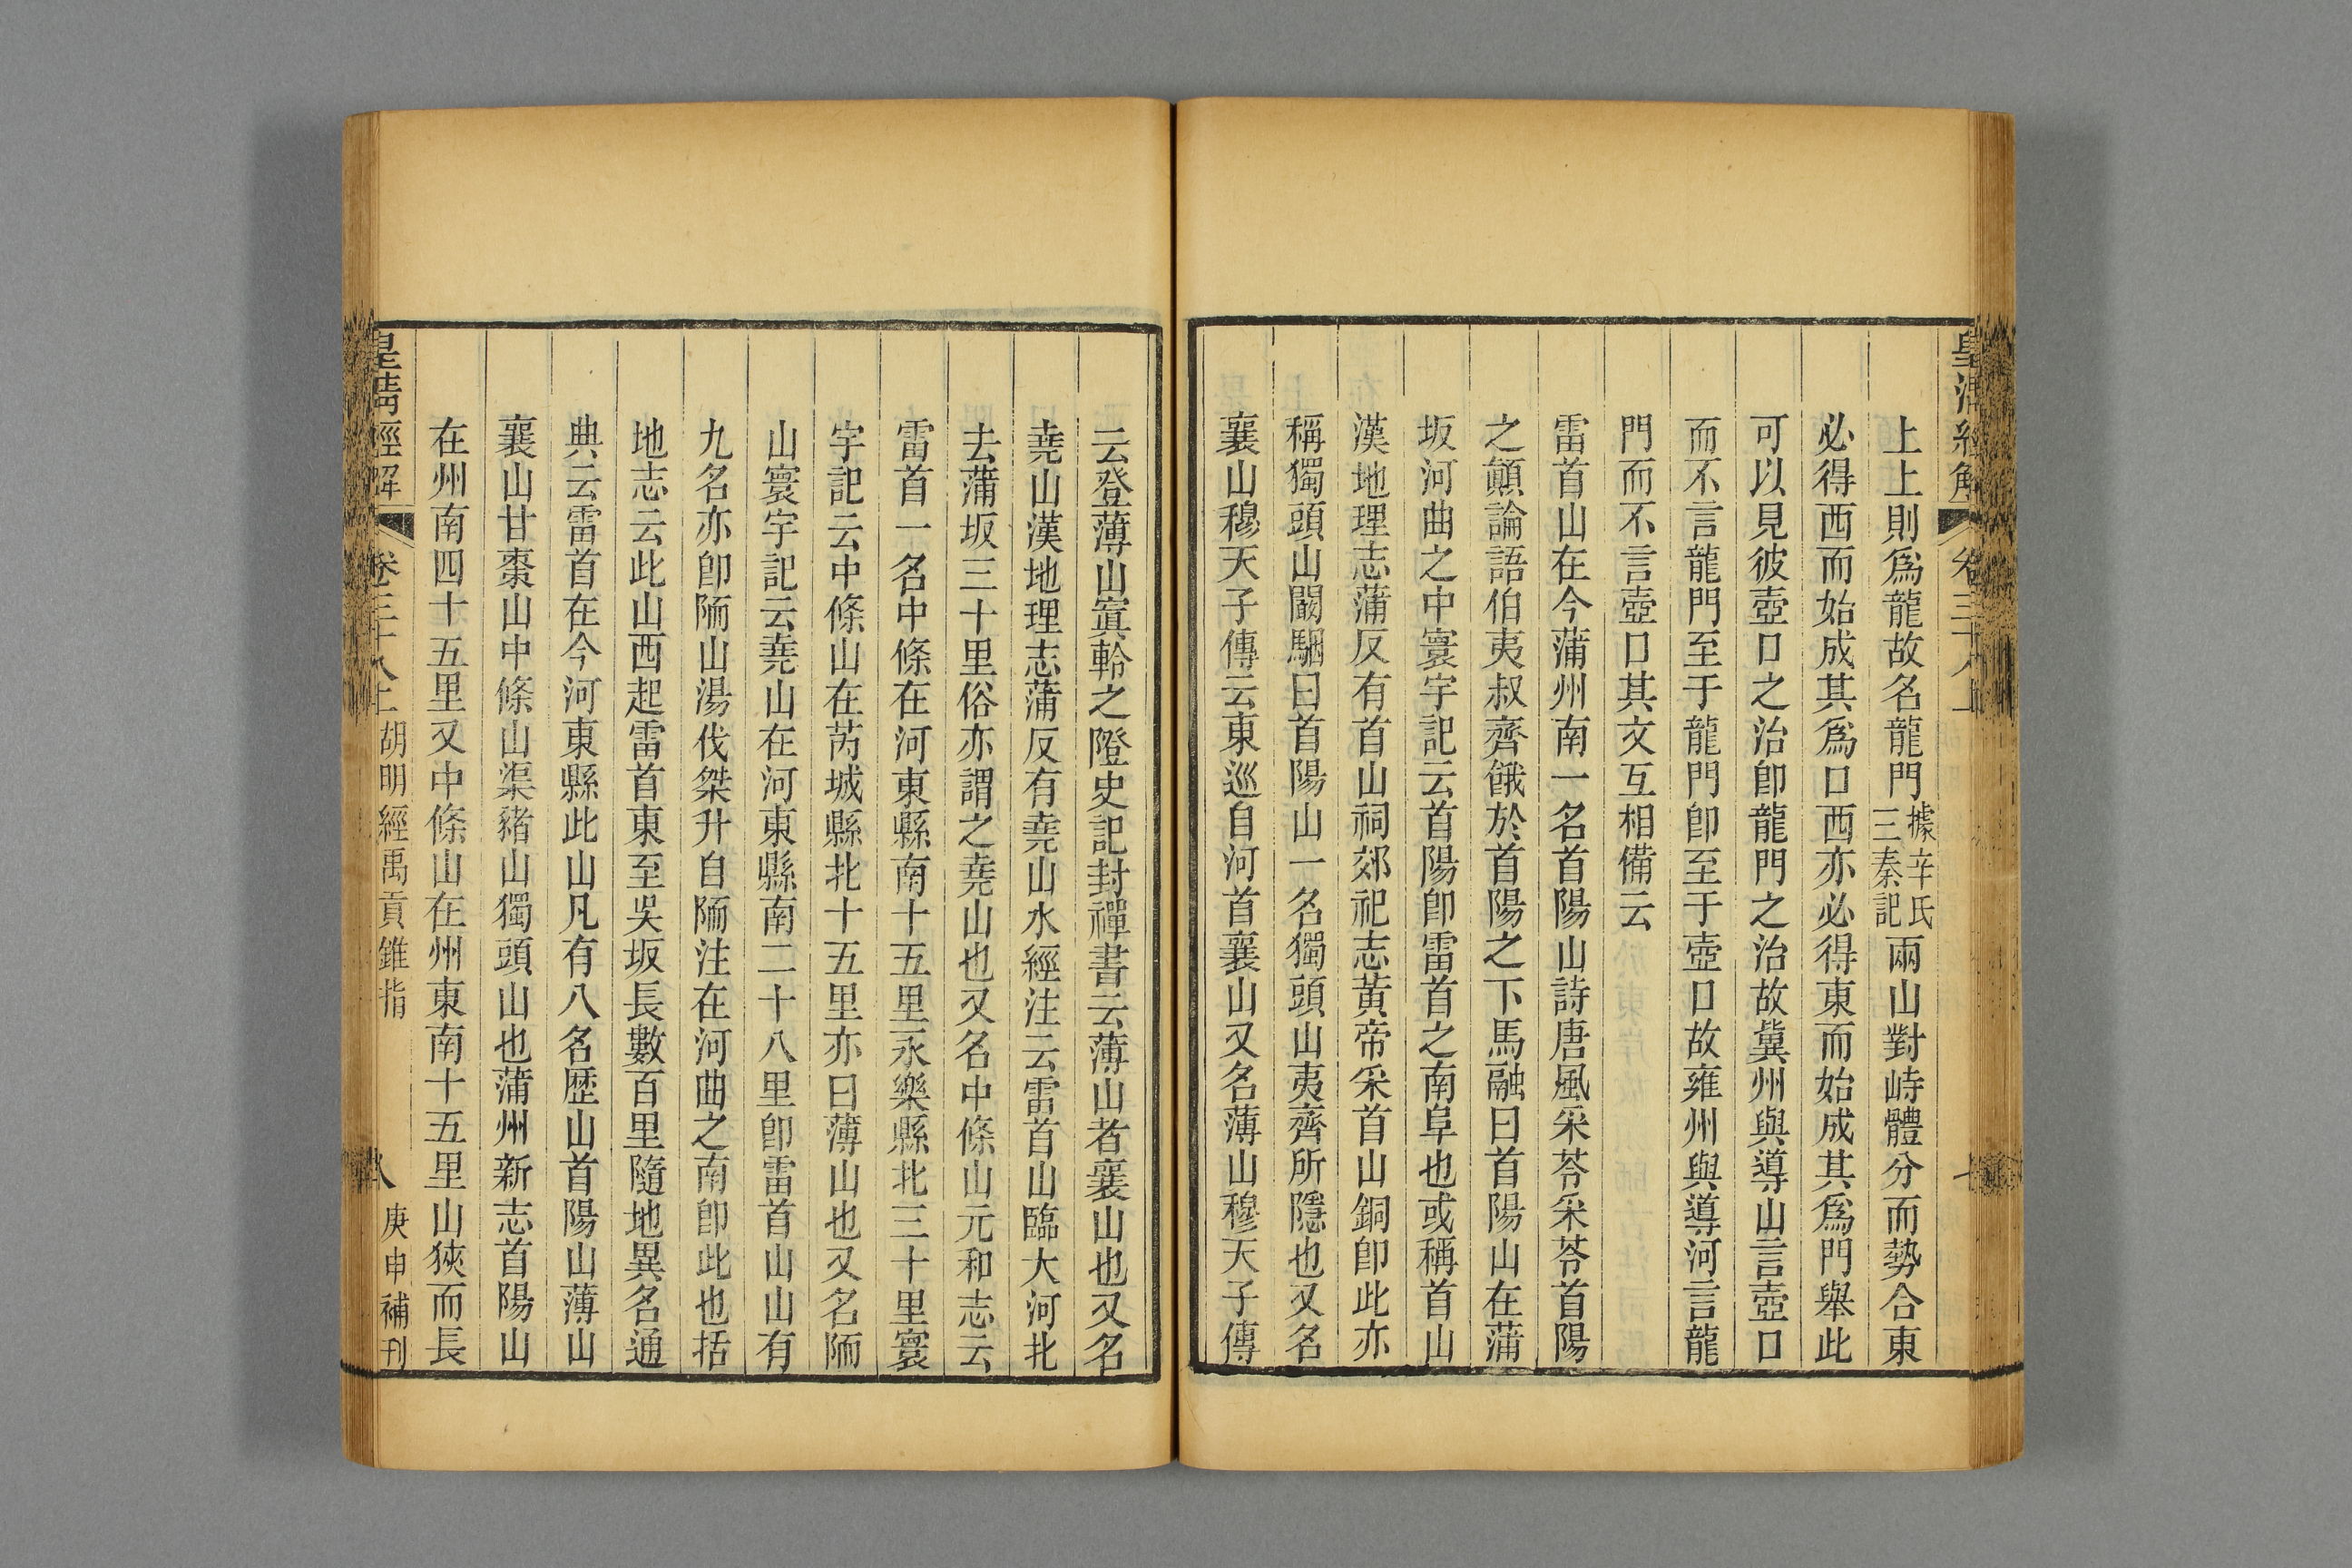 皇清經解
卷三十八上
七
上上則爲龍故名龍門據辛氏三秦記兩山對峙體分而勢合東
必得西而始成其爲口西亦必得東而始成其爲門舉此
可以見彼壺口之治卽龍門之治故冀州與導山言壺口
而不言龍門至于龍門卽至于壺口故雍州與導河言龍
門而不言壺口其文互相備云
雷首山在今蒲州南一名首陽山詩唐風采苓采苓首陽
之顚論語伯夷叔齊餓於首陽之下馬融曰首陽山在蒲
坂河曲之中寰宇記云首陽卽雷首之南阜也或稱首山
漢地理志蒲反有首山祠郊祀志黃帝采首山銅卽此亦
稱獨頭山闞駰曰首陽山一名獨頭山夷齊所隱也又名
襄山穆天子傳云東巡自河首襄山又名薄山穆天子傳
云登薄山寘軨之隥史記封禪書云薄山者襄山也又名
堯山漢地理志蒲反有堯山水經注云雷首山臨大河北
去蒲坂三十里俗亦謂之堯山也又名中條山元和志云
雷首一名中條在河東縣南十五里永樂縣北三十里寰
宇記云中條山在芮城縣北十五里亦曰薄山也又名陑
山寰宇記云堯山在河東縣南二十八里卽雷首山山有
九名亦卽陑山湯伐桀升自陑注在河曲之南卽此也括
地志云此山西起雷首東至吳坂長數百里隨地異名通
典云雷首在今河東縣此山凡有八名歷山首陽山薄山
襄山甘棗山中條山渠豬山獨頭山也蒲州新志首陽山
在州南四十五里又中條山在州東南十五里山狹而長
皇清經解
卷三十八上
胡明經禹貢錐指
八
庚申補刊